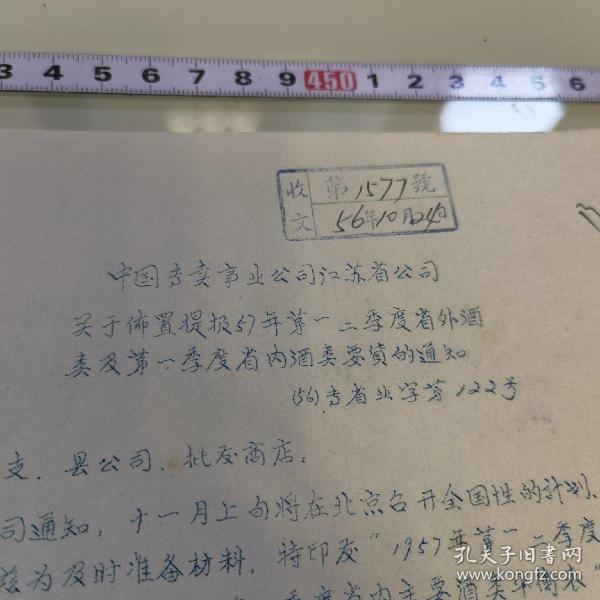 3 4 5 6 7 8 9 450 1 2 3 4 5 6
收文 第1577號
56年10月24日
中国专卖事业公司江苏省公司
关于佈置提报57年第一二季度省外酒
类及第一季度省内酒类要货的通知
(56)专省业字第122号
支、县公司、批发商店:
司通知,十一月上旬将在北京召开全国性的計划、
兹为及时准备材料,特印发"1957年第一二季度
季度省内主要酒类平衡表"
孔夫子旧书网
www.kongfz.com